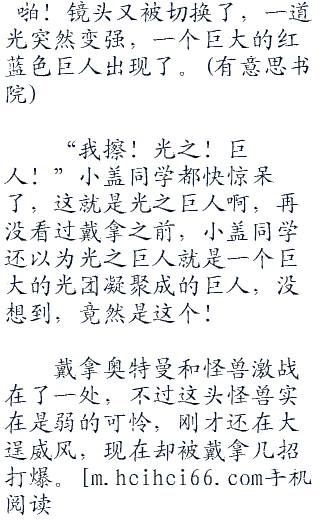 啪！镜头又被切换了，一道
光突然变强，一个巨大的红
蓝色巨人出现了。(有意思书
院)
“我擦！光之！巨
人！”小盖同学都快惊呆
了，这就是光之巨人啊，再
没看过戴拿之前，小盖同学
还以为光之巨人就是一个巨
大的光团凝聚成的巨人，没
想到，竟然是这个！
戴拿奥特曼和怪兽激战
在了一处，不过这头怪兽实
在是弱的可怜，刚才还在大
逞威风，现在却被戴拿几招
打爆。[m.hcihci66.com手机
阅读